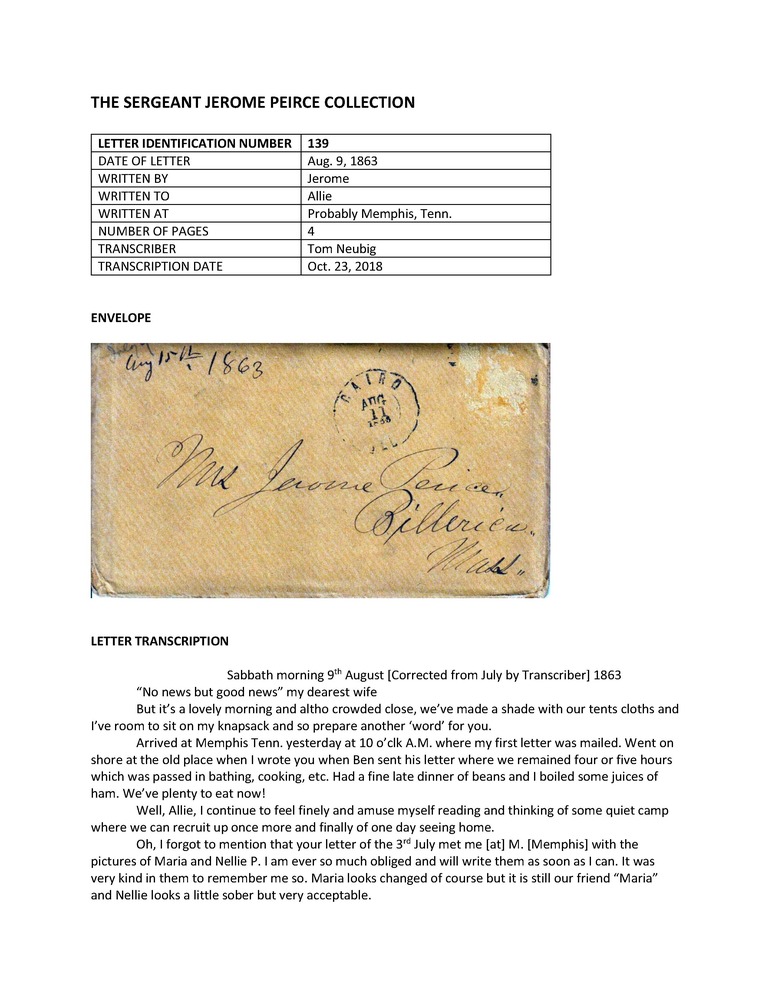 THE SERGEANT JEROME PEIRCE COLLECTION
LETTER IDENTIFICATION NUMBER 139
DATE OF LETTER Aug. 9, 1863
WRITTEN BY Jerome
WRITTEN TO Allie
WRITTEN AT Probably Memphis, Tenn.
NUMBER OF PAGES 4
TRANSCRIBER Tom Neubig
TRANSCRIPTION DATE Oct. 23, 2018
ENVELOPE
Aug 15th 1863
CAIRO
AUG
11
ILL
Mrs Jerome Peirce
Billerica
Mass
LETTER TRANSCRIPTION
Sabbath morning 9th August [Corrected from July by Transcriber] 1863
“No news but good news” my dearest wife
But it’s a lovely morning and altho crowded close, we’ve made a shade with our tents cloths and
I’ve room to sit on my knapsack and so prepare another ‘word’ for you.
Arrived at Memphis Tenn. yesterday at 10 o’clk A.M. where my first letter was mailed. Went on
shore at the old place when I wrote you when Ben sent his letter where we remained four or five hours
which was passed in bathing, cooking, etc. Had a fine late dinner of beans and I boiled some juices of
ham. We’ve plenty to eat now!
Well, Allie, I continue to feel finely and amuse myself reading and thinking of some quiet camp
where we can recruit up once more and finally of one day seeing home.
Oh, I forgot to mention that your letter of the 3rd July met me [at] M. [Memphis] with the
pictures of Maria and Nellie P. I am ever so much obliged and will write them as soon as I can. It was
very kind in them to remember me so. Maria looks changed of course but it is still our friend “Maria”
and Nellie looks a little sober but very acceptable.